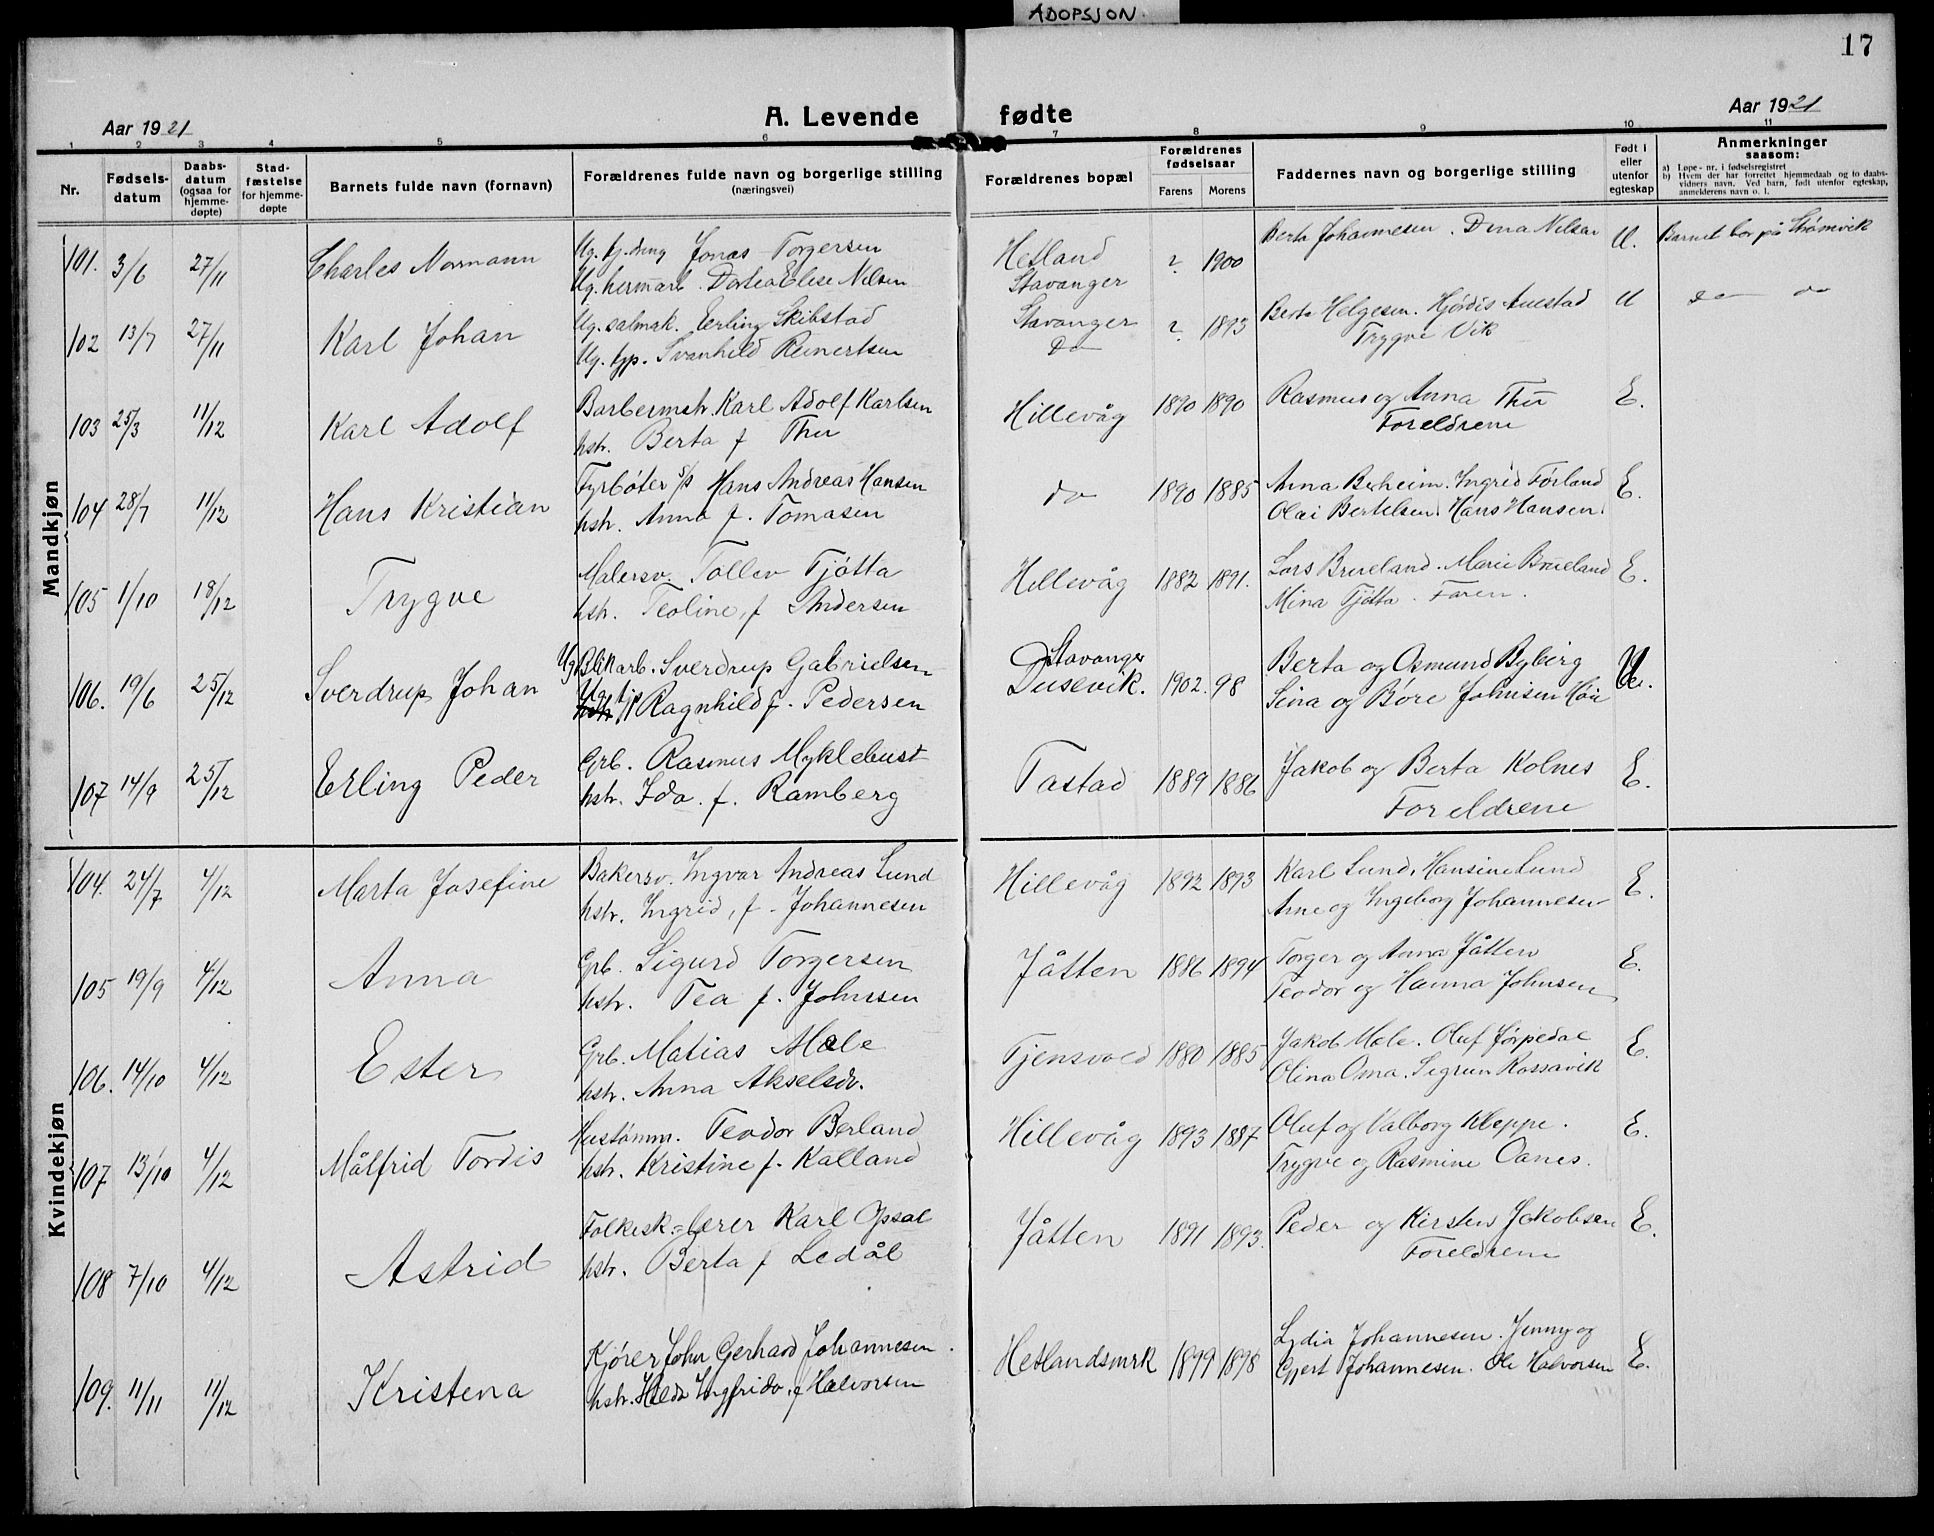 ADOPSJON.
17
Aar 1921
A. Levende fødte
Aar 1921
1 2 3 4 5 6 7 8 9 10 11
Nr.
Fødsels-
datum
Daabs-
datum
(ogsaa for
hjemme-
døpte)
Stad-
fæstelse
for hjemme-
døpte
Barnets fulde navn (fornavn)
Forældrenes fulde navn og borgerlige stilling
(næringsvei)
Forældrenes bopæl
Forældrenes
fødselsaar
Farens Morens
Faddernes navn og borgerlige stilling
Født i
eller
utenfor
egteskap
Anmerkninger
saasom:
a) Løpe-nr. i fødselsregistret
b) Hvem der har forrettet hjemmedaab og to daabs-
vidners navn. Ved barn, født utenfor egteskap,
anmelderens navn o. l.
Mandkjøn
101. 3/6 27/11 Charles Normann
Ug. Jonas Torgersen
Ug. Dortea Elise Nilsen
Hetland
Stavanger
? 1900
Berta Johannesen. Dina Nilsen
U. Barnet bor på Strømvik
102 13/7 27/11 Karl Johan
Ug. salmak. Erling Skibstad
Ug. Svanhild Reinertsen
Stavanger
Do
? 1893
Berta Helgesen. Hjørdis Auestad
Trygve Vik
U do do
103 25/3 11/12 Karl Adolf
Barbermstr. Karl Adolf Karlsen
hstr. Berta f Thu
Hillevåg 1890 1890
Rasmus og Anna Thu
Foreldrene
E.
104 28/7 11/12 Hans Kristian
Fyrbøter s/s Hans Andreas Hansen
hstr. Anna f. Tomasen
do 1890 1885
Anna Ingrid Førland
Olai Bertelsen. Hans Hansen.
E.
105 1/10 18/12 Trygve
Malersv. Tollev Tjøtta
hstr. Teoline, f Andersen
Hillevåg 1882 1891.
Lars Brueland. Marie Brueland
Mina Tjøtta. Faren.
E.
106. 19/6 25/12 Sverdrup Johan
Ug. Blikarb. Sverdrup Gabrielsen
Ug. Ragnhild f. Pedersen
Stavanger
Dusevik. 1902. 98
Berta og Osmund Byberg
Sina og Børe Johnsen
U.
107 14/9 25/12 Erling Peder
Grb. Rasmus Myklebust
hstr. Ida. f. Ramberg
Tastad 1889 1886
Jakob og Berta Kolnes
Foreldrene
E.
Kvindekjøn
104. 24/7 4/12 Marta Josefine
Bakersv. Ingvar Andreas Lund
hstr. Ingrid, f. Johannesen
Hillevåg 1892 1893
Karl Lund. Hansine Lund
Arne og Ingeborg Johannesen
E.
105 19/9 4/12 Anna
Grb. Sigurd Torgersen
hstr. Tea f. Johnsen
Jåtten 1886 1894
Torger og Anna Jåtten
Teodor og Hanna Johnsen
E.
106. 14/10 4/12 Ester
Grb. Matias Mæle
hstr. Anna Akselsdr.
Tjensvold 1880 1885
Jakob Mæle. Oluf Jørpedal
Olina Oma. Sigrun Rossavik
E.
107 13/10 4/12 Målfrid Tordis
Hustømm. Teodor Berland
hstr. Kristine f. Kalland
Hillevåg 1893 1887
Oluf og Valborg Kleppe.
Trygve og Rasmine Oanes.
E.
108 7/10 4/12 Astrid
Folkesk.=lærer Karl Opsal
hstr. Berta f Ledål
Jåtten 1891 1893.
Peder og Kirsten Jakobsen
Foreldrene
E.
109. 11/11 11/12 Kristena
Kjører John Gerhard Johannesen.
hstr. Hilda Ingfrida, f Halvorsen
Hetlandsmrk 1899 1898
Lydia Johannesen. Jenny og
Gjert Johannesen. Ole Halvorsen
E.